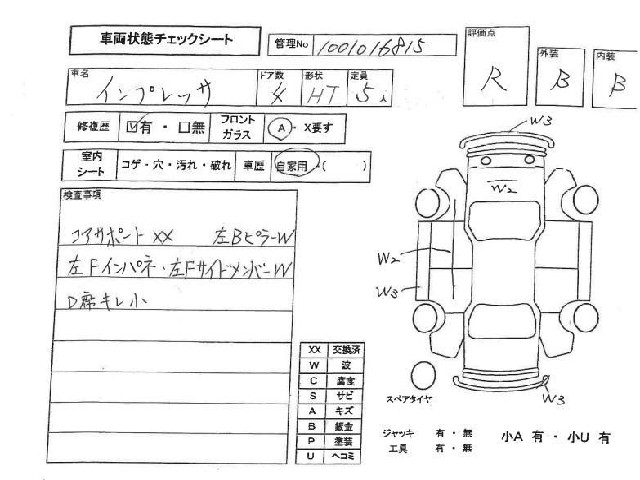 車両状態チェックシート
管理No 1001016815
評価点 R
外装 B
内装 B
車名 インプレッサ
ドア数 4
形状 HT
定員 5人
修復歴 ☑有・□無
フロントガラス Ⓐ・X要す
室内シート コゲ・穴・汚れ・破れ
車歴 自家用・( )
検査事項
コアサポート XX 左BピラーW
左Fインパネ・左FサイドメンバーW
D席キレ小
XX 交換済
W 波
C
S サビ
A キズ
B 鈑金
P 塗装
U ヘコミ
W3
W2
W2
W3
W3
スペアタイヤ
ジャッキ 有・無
工具 有・無
小A 有・小U 有